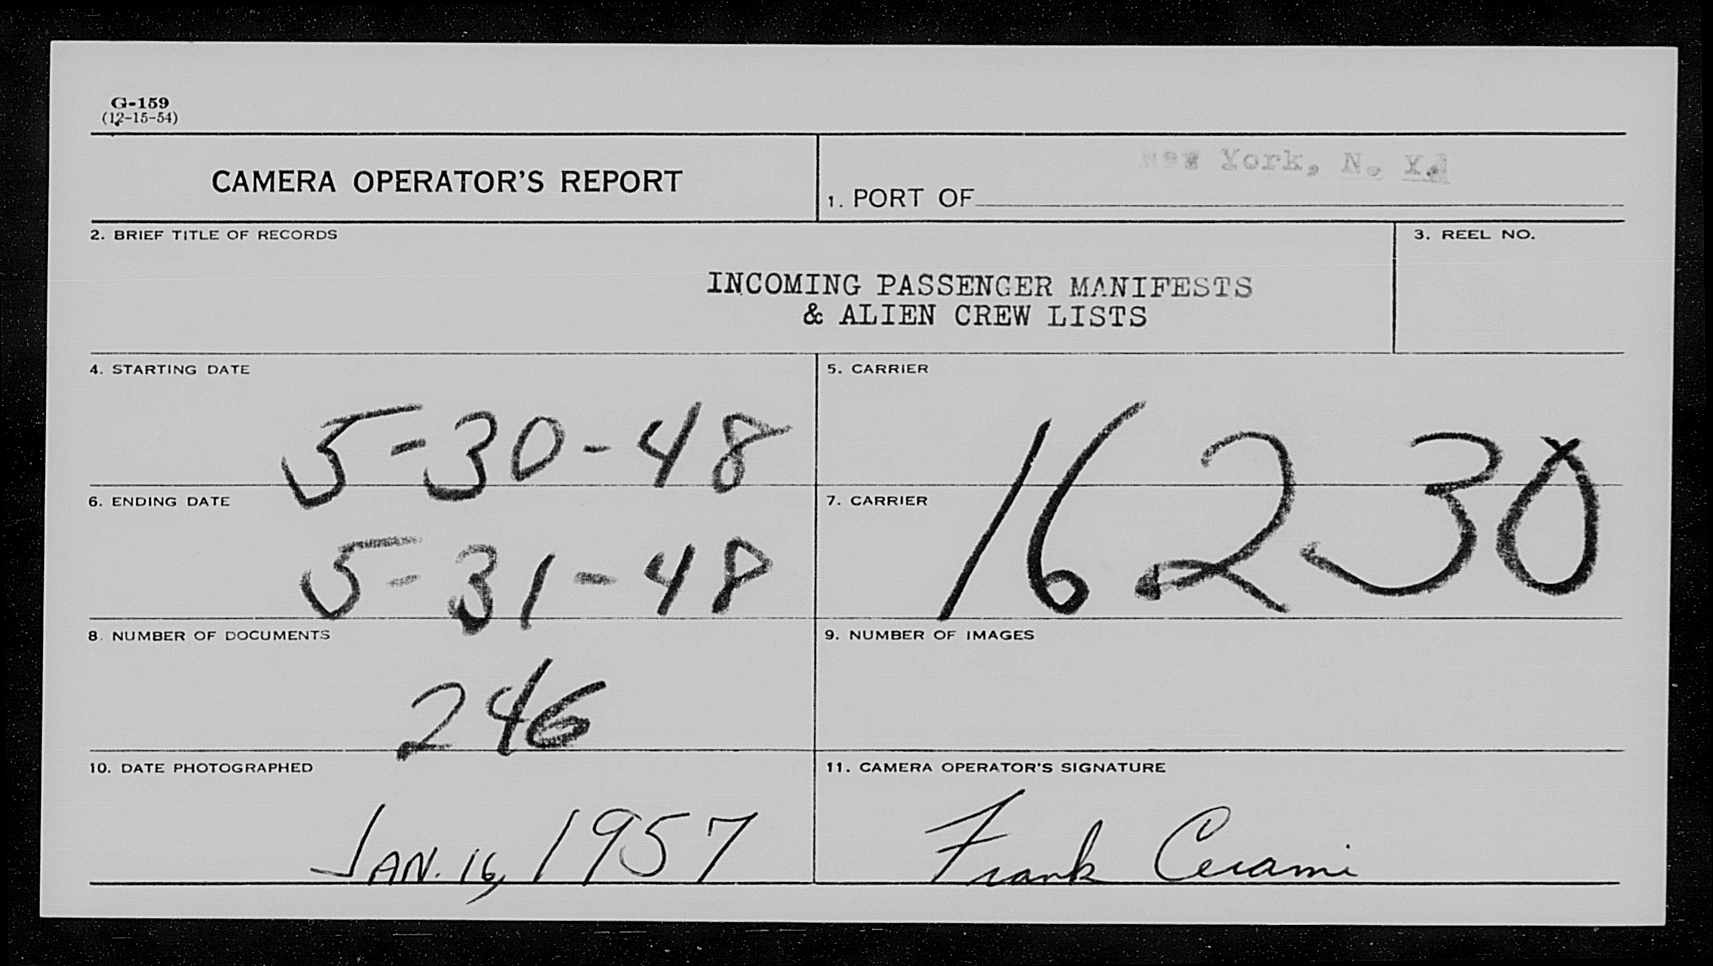 G-159
(12-15-54)
CAMERA OPERATOR'S REPORT
1. PORT OF New York, N. Y.
2. BRIEF TITLE OF RECORDS
INCOMING PASSENGER MANIFESTS
& ALIEN CREW LISTS
3. REEL NO.
4. STARTING DATE
5-30-48
5. CARRIER
16230
6. ENDING DATE
5-31-48
7. CARRIER
8. NUMBER OF DOCUMENTS
246
9. NUMBER OF IMAGES
10. DATE PHOTOGRAPHED
JAN. 16, 1957
11. CAMERA OPERATOR'S SIGNATURE
Frank Cerami